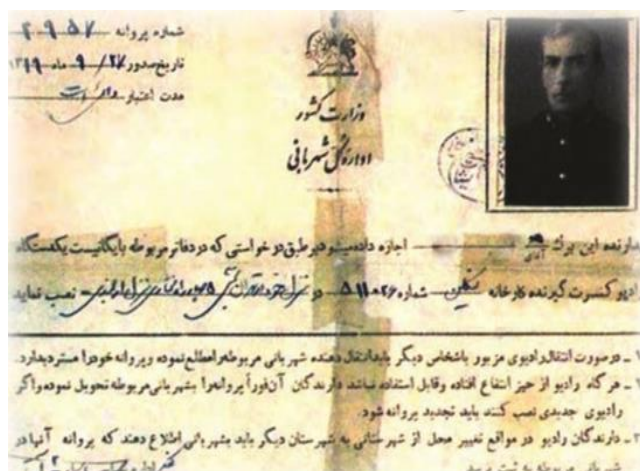 شماره پروانه ۲۹۵۷
تاریخ صدور ۲۷/ ۹ ماه ۱۳۱۹
مدت اعتبار
وزارت کشور
اداره کل شهربانی
دارنده این برگ آقای اجازه داده میشود بر طبق درخواستی که در دفاتر مربوطه بایگانیست یکدستگاه
رادیو کنسرت گیرنده کارخانه شماره ۵۱۱۰۲۶ در نصب نماید
۱ - در صورت انتقال رادیوی مزبور باشخاص دیگر باید انتقال دهنده شهربانی مربوطه را مطلع نموده و پروانه خود را مسترد بدارد.
۲ - هر گاه رادیو از حیز انتفاع افتاده وقابل استفاده نباشد دارندگان آن فوراً پروانه را بشهربانی مربوطه تحویل نموده واگر
رادیوی جدیدی نصب کنند باید تجدید پروانه شود.
۳ - دارندگان رادیو در مواقع تغییر محل از شهرستانی به شهرستان دیگر باید بشهربانی اطلاع دهند که پروانه آنها در
شهربانی مربوطه به ثبت برسد.